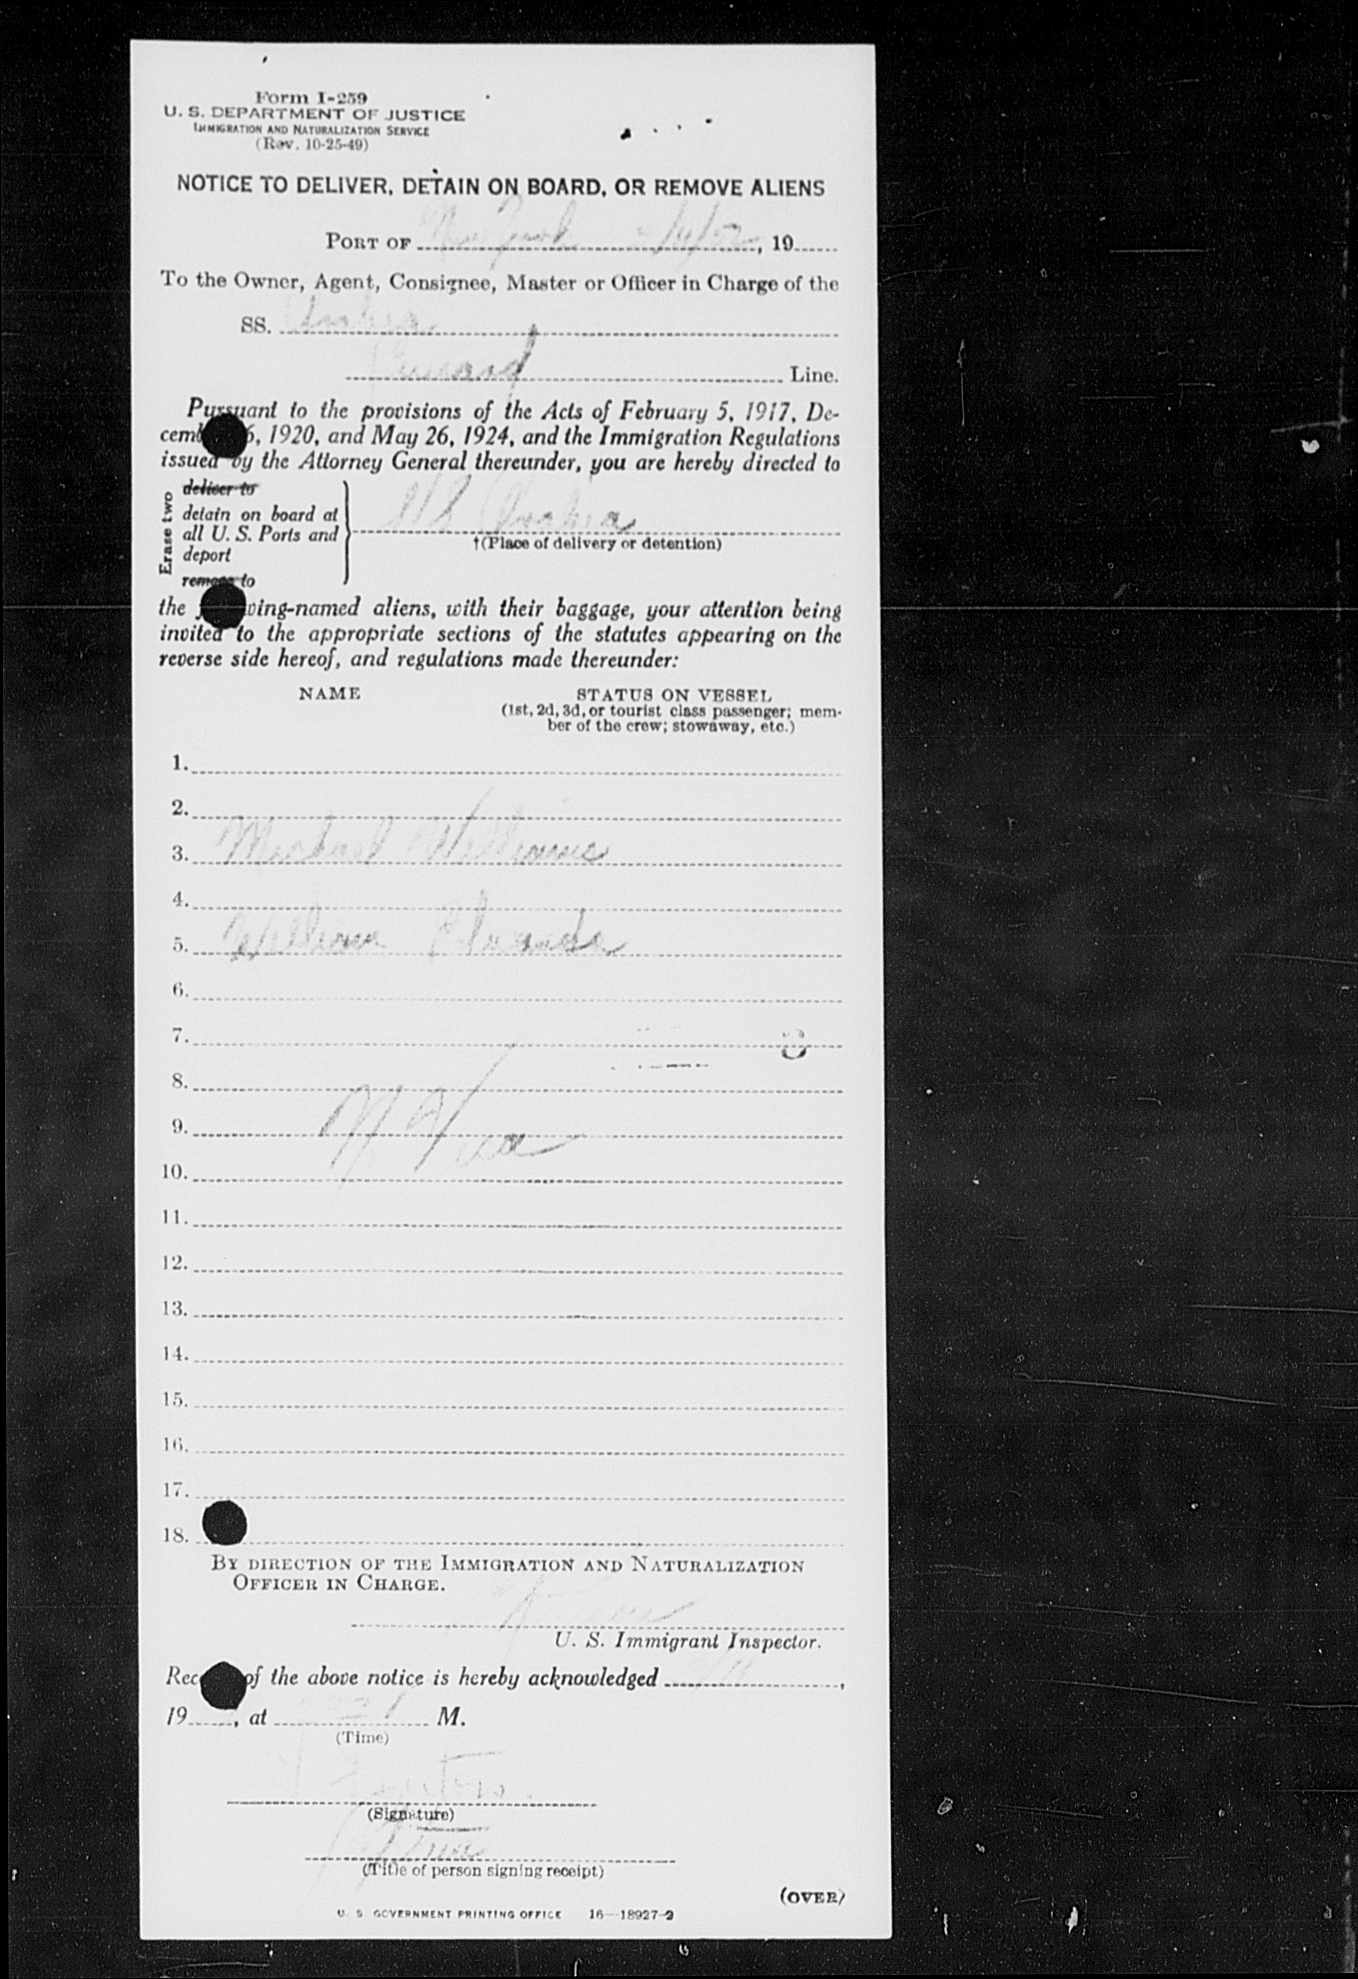 Form I-259
U. S. DEPARTMENT OF JUSTICE
IMMIGRATION AND NATURALIZATION SERVICE
(Rev. 10-25-49)
NOTICE TO DELIVER, DETAIN ON BOARD, OR REMOVE ALIENS
PORT OF New York , 19
To the Owner, Agent, Consignee, Master or Officer in Charge of the
SS.
Cunard Line.
Pursuant to the provisions of the Acts of February 5, 1917, De-
cemb 6, 1920, and May 26, 1924, and the Immigration Regulations
issued by the Attorney General thereunder, you are hereby directed to
Erase two
deliver to
detain on board at
all U. S. Ports and
deport
remove to
†(Place of delivery or detention)
the wing-named aliens, with their baggage, your attention being
invited to the appropriate sections of the statutes appearing on the
reverse side hereof, and regulations made thereunder:
NAME STATUS ON VESSEL
(1st, 2d, 3d, or tourist class passenger; mem-
ber of the crew; stowaway, etc.)
1.
2.
3. Michael Williams
4.
5. William Edwards
6.
7.
8.
9.
10.
11.
12.
13.
14.
15.
16.
17.
18.
BY DIRECTION OF THE IMMIGRATION AND NATURALIZATION
OFFICER IN CHARGE.
U. S. Immigrant Inspector.
Rec of the above notice is hereby acknowledged ,
19 , at M.
(Time)
(Signature)
(Title of person signing receipt)
(OVER)
U. S. GOVERNMENT PRINTING OFFICE 16—18927-2